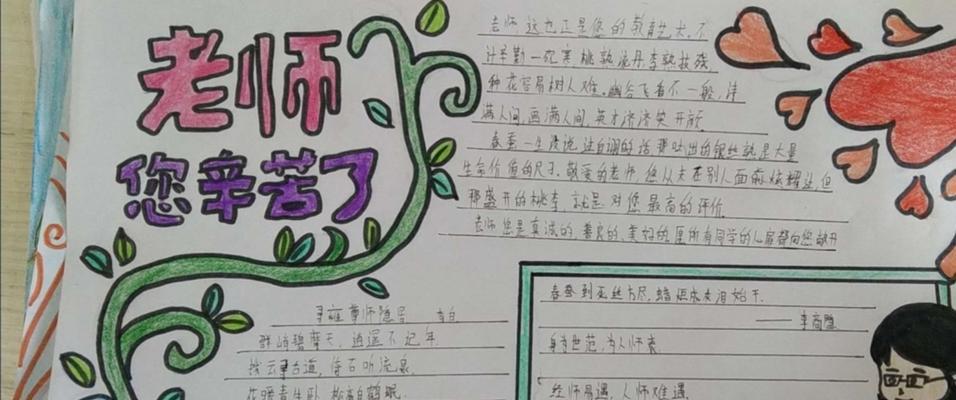 老师
您辛苦了
老师,这也正是您的教育艺术。不
计辛勤一砚寒,桃熟流丹,李熟枝残,
种花容易树人难。幽谷飞香不一般,诗
满人间,画满人间,英才济济笑开颜。
春蚕一生没说过自诩的话,那吐出的银丝就是丈量
生命价值的尺子。敬爱的老师,您从未在别人面前炫耀过,但
那盛开的桃李,就是对您最高的评价。
老师,您是真诚的、善良的、美好的,愿所有同学的心扉都向您敞开
寻雍尊师隐居 李白
群峭碧摩天,逍遥不记年。
拨云寻古道,倚石听流泉。
花暖青牛卧,松高白鹤眠。
春蚕到死丝方尽,蜡炬成灰泪始干。
——李商隐
身为世范,为人师表。
经师易遇,人师难遇。